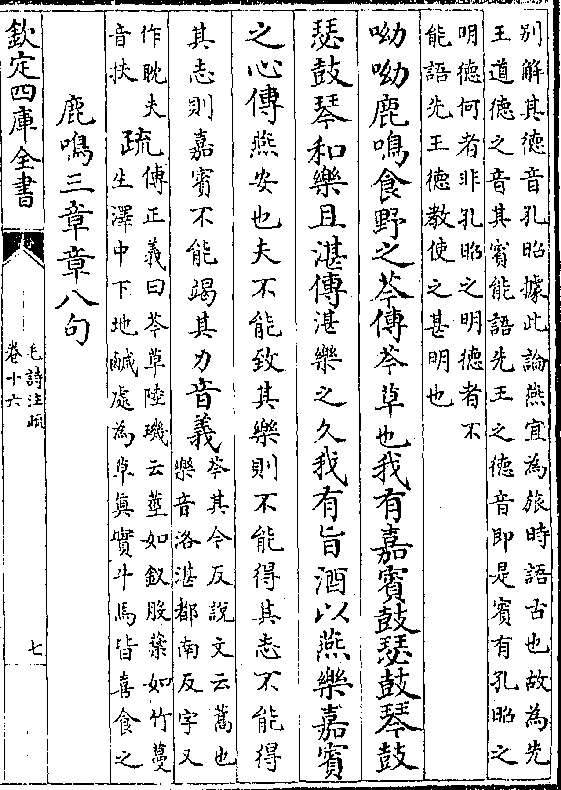 別解其德音孔昭據此論燕宜為旅時語古也故為先
王道德之音其賓能語先王之德音即是賓有孔昭之
明德何者非孔昭之明德者不
能語先王德教使之甚明也
呦呦鹿鳴食野之芩傳芩草也我有嘉賓鼓瑟鼓琴鼓
瑟鼓琴和樂且湛傳湛樂之久我有旨酒以燕樂嘉賓
之心傳燕安也夫不能致其樂則不能得其志不能得
其志則嘉賓不能竭其力音義
芩其今反說文云蒿也
樂音洛湛都南反字又
作耽夫
音扶
疏
傳正義曰芩草陸璣云莖如釵股葉如竹蔓
生澤中下地鹹處為草真實牛馬皆喜食之
鹿鳴三章章八句
欽定四庫全書
毛詩注疏
卷十六
七